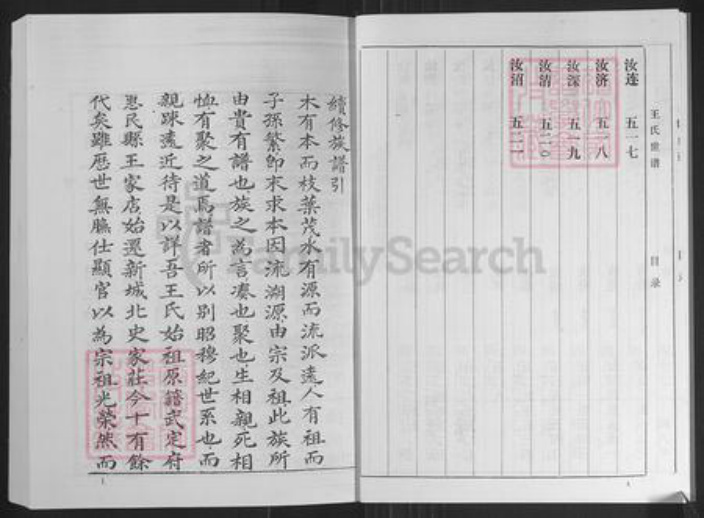 汝连 五一七
汝济 五一八
汝深 五一九
汝清 五二〇
汝沼 五二一
王氏世谱 目录
續修族譜引
木有本而枝葉茂水有源而流派遠人有祖而
子孫繁即末求本因流溯源由宗及祖此族所
由貴有譜也族之為言湊也聚也生相親死相
恤有聚之道焉譜者所以别昭穆紀世系也而
親踈遠近待是以詳吾王氏始祖原籍武定府
惠民縣王家店始遷新城北史家莊今十有餘
代矣雖歷世無膴仕顯官以為宗祖光榮然而
1
FamilySearch